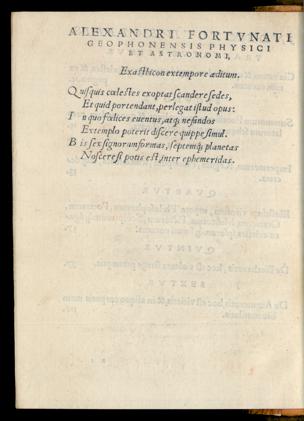 ALEXANDRI FORTVNATI
GEOPHONENSIS PHYSICI
ET ASTRONOMI,
Exasthicon extempore æditum.
Quisquis cœlestes exoptas scandere sedes,
Et quid portendant, perlegat istud opus:
In quo fœlices euentus, atq; nefandos
Extemplo poterit discere quippe simul.
Bis sex signorum formas, septemq; planetas
Noscere si potis est, inter ephemeridas.